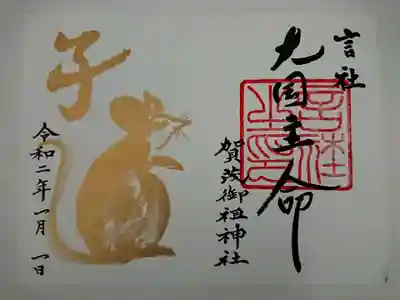 言社
大国主命
賀茂御祖神社
子
令和二年一月一日